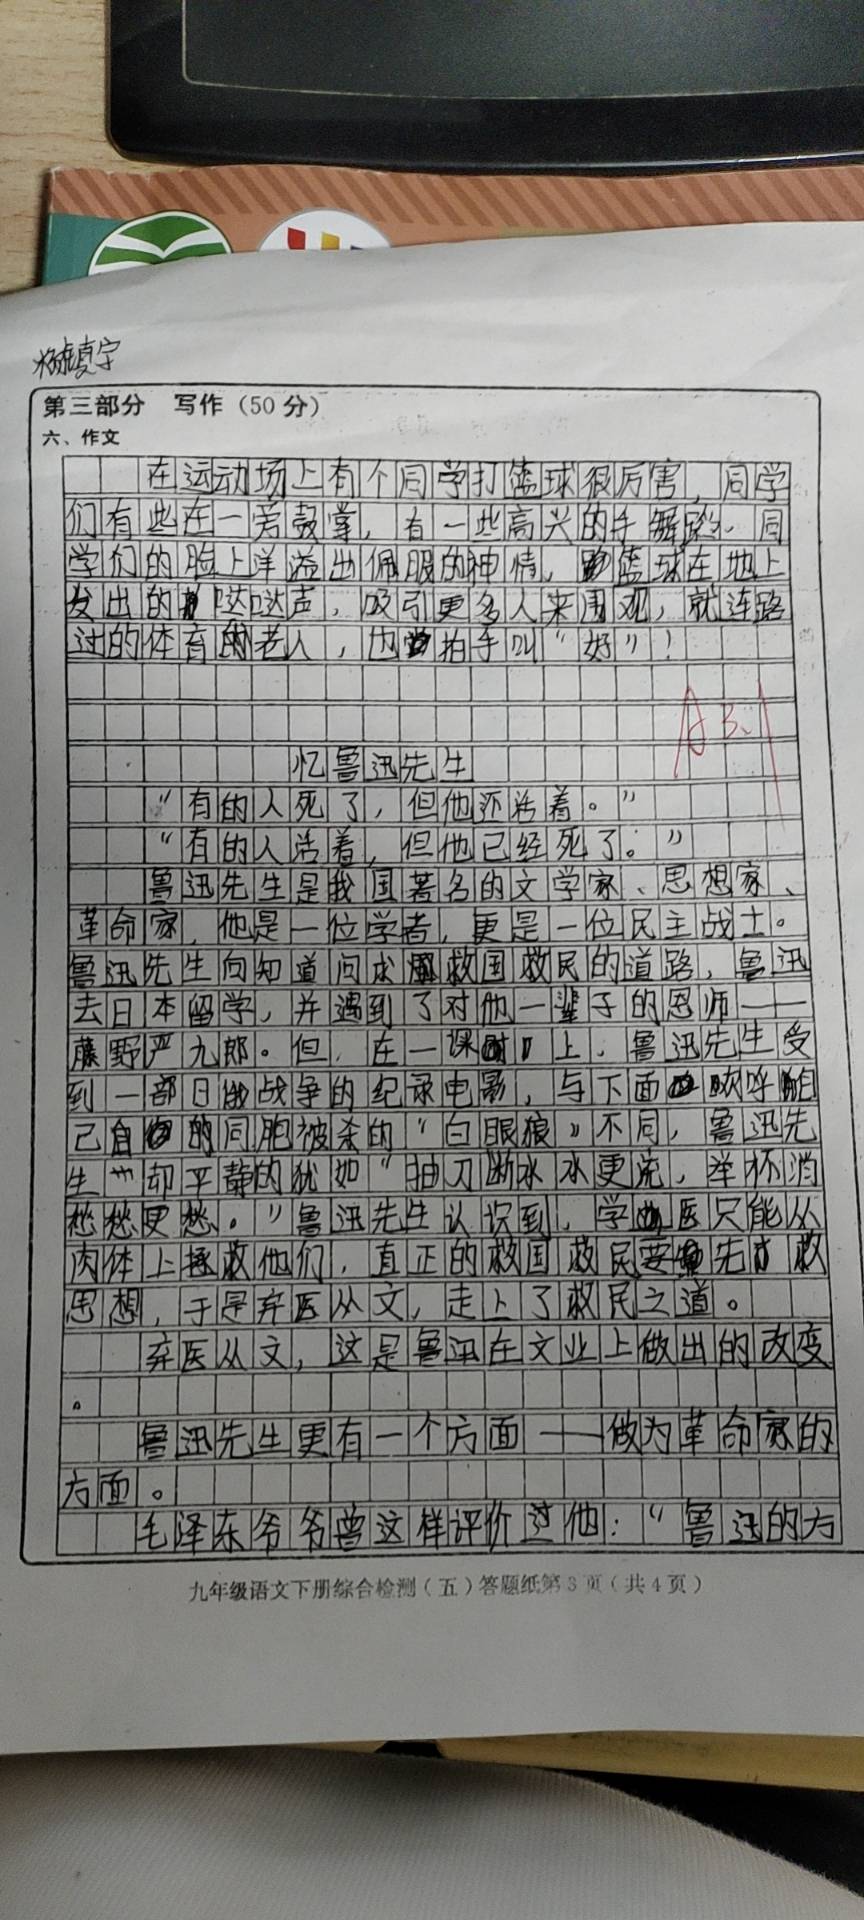 第三部分 写作（50分）
六、作文
在运动场上有个同学打篮球很厉害，同学
们有些在一旁鼓掌，有一些高兴的手舞蹈。同
学们的脸上洋溢出佩服的神情，篮球在地上
发出的哒哒声，吸引更多人来围观，就连路
过的体育的老人，也拍手叫“好”！
A 3.1
忆鲁迅先生
“有的人死了，但他还活着。”
“有的人活着，但他已经死了。”
鲁迅先生是我国著名的文学家、思想家、
革命家，他是一位学者，更是一位民主战士。
鲁迅先生向知道问求救国救民的道路，鲁迅
去日本留学，并遇到了对他一辈子的恩师——
藤野严九郎。但，在一课上，鲁迅先生受
到一部日俄战争的纪录电影，与下面欢呼自
己自的同胞被杀的“白眼狼”不同，鲁迅先
生却平静的犹如“抽刀断水水更流，举杯消
愁愁更愁。”鲁迅先生认识到，学医只能从
肉体上拯救他们，直正的救国救民要先救
思想，于是弃医从文，走上了救民之道。
弃医从文，这是鲁迅在文业上做出的改变
。
鲁迅先生更有一个方面——做为革命家的
方面。
毛泽东爷爷曾这样评价过他：“鲁迅的方
九年级语文下册综合检测（五）答题纸第3页（共4页）